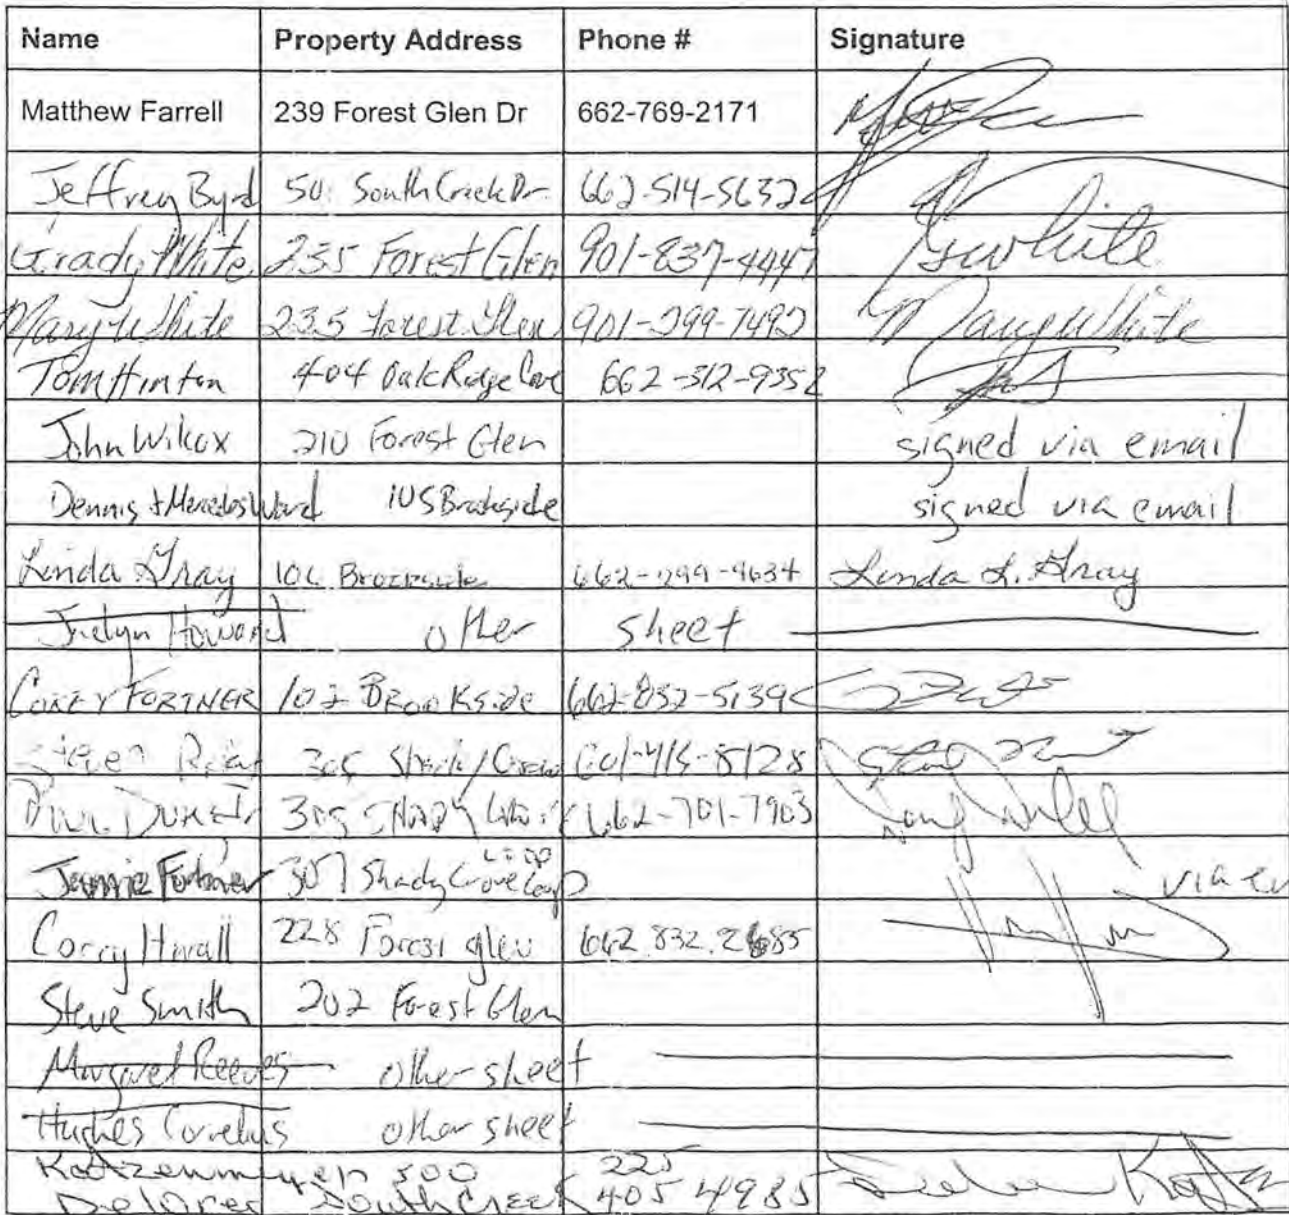 Name Property Address Phone # Signature
Matthew Farrell 239 Forest Glen Dr 662-769-2171
Jeffrey Byrd 50 South Creek Dr. 662-514-5632
Grady White 235 Forest Glen 901-837-4447 Gwhite
Mary White 235 Forest Glen 901-299-7492 Mary White
Tom Hinton 404 Oak Ridge Cove 662-312-9352
John Wilcox 210 Forest Glen signed via email
Dennis + Mercedes Ward 105 Brookside signed via email
Linda Gray 106 Brookside 662-299-9634 Linda L. Gray
Howard other sheet
Corey Fortner 102 Brookside 662-832-5139
Steven 305 Shady 601-415-8128
305 Shady 662-701-7903
Loop
Jammie Fortner 307 Shady Grove Loop via em
Corry Hwall 228 Forest glen 662.832.2685
Steve Smith 202 Forest Glen
Margaret Reeves other sheet
Hughes Cornelius other sheet
Katzenmeyer 300 225
Delores South Creek 405 4985